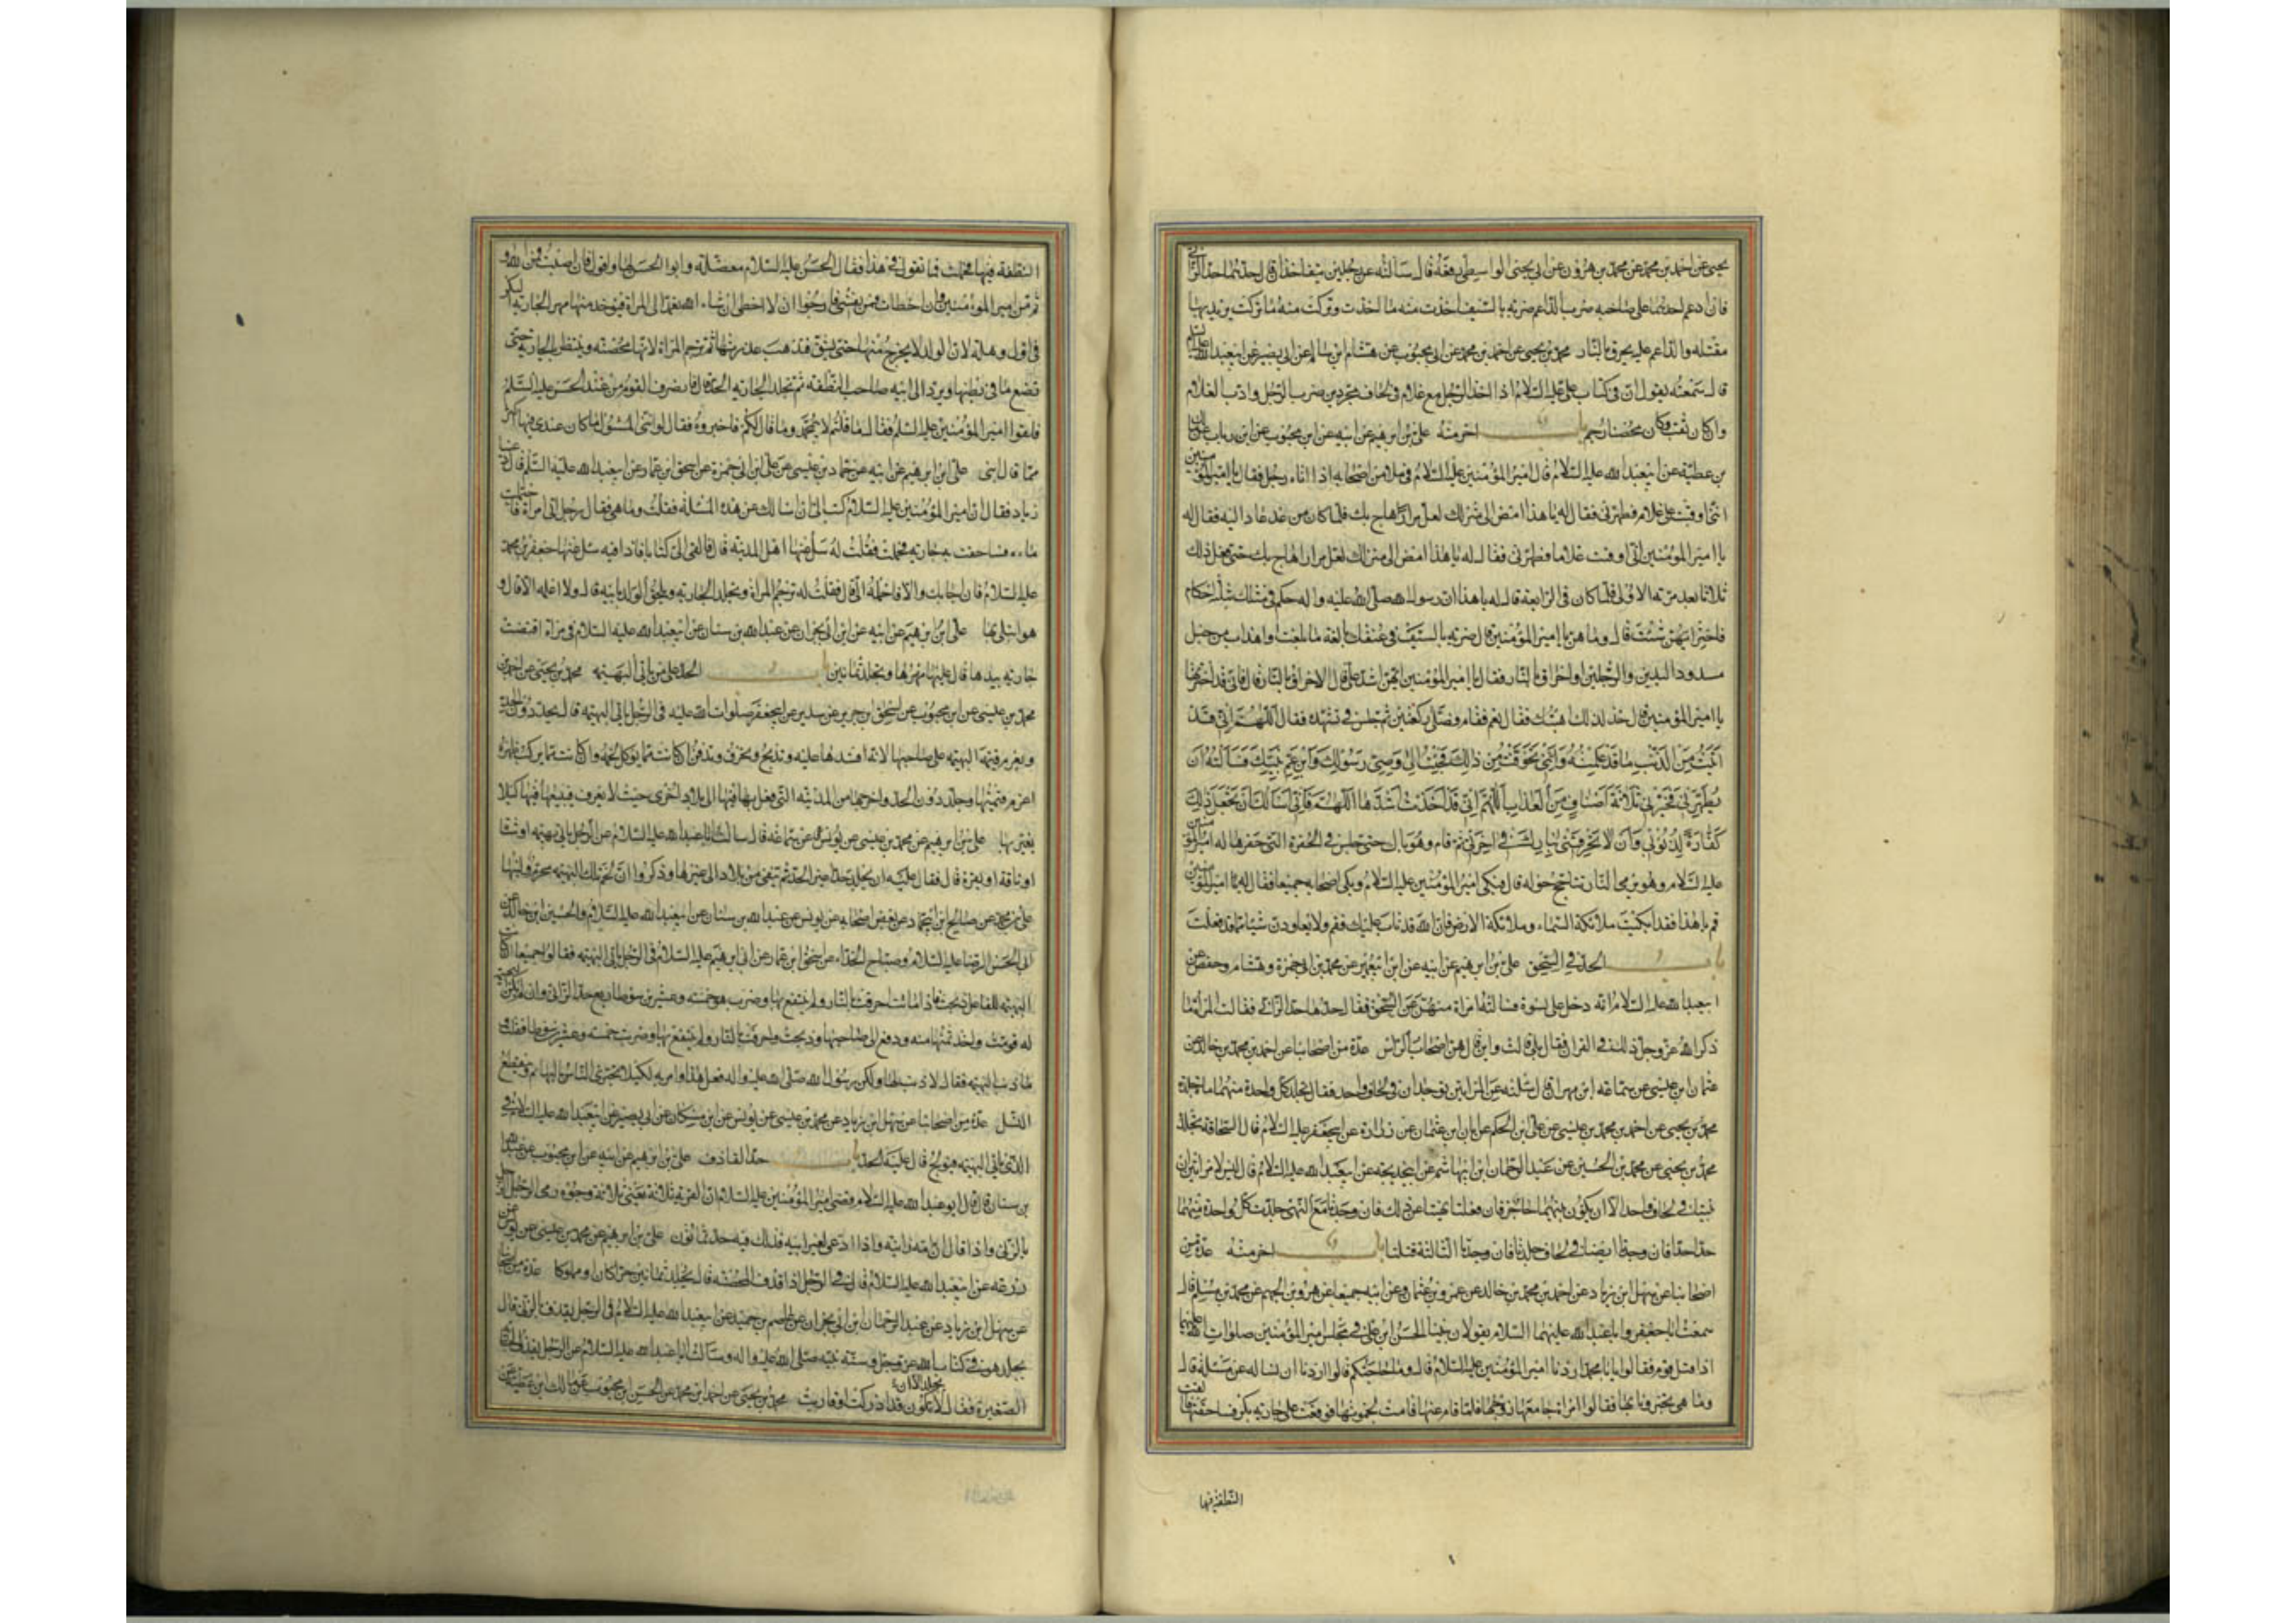 يحيى عن احمد بن محمد عن محمد بن هرون عن ابى يحيى الواسطى رفعه قال سالته عن رجلين يتفاخذان قال حدهما حد الزانى
فان ادعم احدهما على صاحبه ضرب الداعم ضربة بالسيف اخذت منه ما اخذت وتركت منه ما تركت يريد بها
مقتله والداعم عليه يحرق بالنار محمد بن يحيى عن احمد بن محمد عن ابن محبوب عن هشام ابن سالم عن ابى بصير عن ابيعبدالله عليه السلام
قال سمعته يقول ان فى كتاب على عليه السلام اذا اخذ الرجل مع غلام فى لحاف مجردين ضرب الرجل وادب الغلام
وان كان ثقب وكان محصنا رجم باب اخر منه على بن ابرهيم عن ابيه عن ابن محبوب عن ابن رئاب عن مالك
بن عطية عن ابيعبد الله عليه السلام قال امير المؤمنين عليه السلام فى ملا من اصحابه اذا اتاه رجل فقال يا امير المؤمنين
انى اوقبت على غلام فطهرنى فقال له يا هذا امض الى منزلك لعل مرارا هاج بك فلما كان من غد عاد اليه فقال له
يا امير المؤمنين انى اوقبت غلاما فطهرنى فقال له يا هذا امض الى منزلك لعل مرارا هاج بك حتى فعل ذلك
ثلاثا بعد مرته الاولى فلما كان فى الرابعة قال له يا هذا ان رسول الله صلى الله عليه واله حكم فى مثلك بثلثة احكام
فاختر ايهن شئت قال وما هن يا امير المؤمنين قال ضربة بالسيف فى عنقك بالغة ما بلغت او اهداب من جبل
مسدود اليدين والرجلين او احراق بالنار فقال يا امير المؤمنين ايهن اشد على قال الاحراق بالنار قال فانى قد اخترتها
يا امير المؤمنين قال خذ لذلك اهبتك فقال نعم فقام وصلى ركعتين ثم جلس فى تشهده فقال اللهم انى قد
اتيت من الذنب ما قد علمته وانى تخوفت من ذلك فجئت الى وصى رسولك وابن عم نبيك فسالته ان
يطهرنى فخيرنى ثلاثة اصناف من العذاب اللهم انى قد اخذت اشدها اللهم فانى اسالك ان تجعل ذلك
كفارة لذنوبى وان لا تحرقنى بنارك فى اخرتى ثم قام وهو باك حتى جلس فى الحفرة التى حفرها له امير المؤمنين
عليه السلام وهو يرى النار تتاجج حوله قال فبكى امير المؤمنين عليه السلام وبكى اصحابه جميعا فقال له يا امير المؤمنين
قم يا هذا فقد ابكيت ملائكة السماء وملائكة الارض فان الله قد تاب عليك فقم ولا تعاودن شيئا مما قد فعلت
باب الحد فى السحق على بن ابرهيم عن ابيه عن ابن ابيعمير عن محمد بن ابى حمزة وهشام وحفص عن
ابيعبد الله عليه السلام انه دخل على نسوة فسالته امراة منهن عن السحق فقال حدها حد الزانى فقالت المراة ما
ذكر الله عز وجل ذلك فى القران فقال بلى قالت واين قال هن اصحاب الرس عدة من اصحابنا عن احمد بن محمد بن خالد عن
عثمان ابن عيسى عن سماعة ابن مهران قال سئلته عن المراتين توجدان فى لحاف واحد فقال تجلد كل واحدة منهما مائة جلدة
محمد بن يحيى عن احمد بن محمد بن عيسى عن على ابن الحكم عن ابان ابن عثمان عن زرارة عن ابيجعفر عليه السلام قال السحاقة تجلد
محمد بن يحيى عن محمد بن الحسين عن عبد الرحمان ابن ابيهاشم عن ابيخديجه عن ابيعبد الله عليه السلام قال ليس لامراتين ان
تبيتا فى لحاف واحد الا ان يكون بينهما حاجز فان فعلتا نهيتا عن ذلك فان وجدتا مع النهى جلدت كل واحدة منهما
حدا حدا فان وجدتا ايضا فى لحاف جلدتا فان وجدتا الثالثة قتلتا باب اخر منه عدة من
اصحابنا عن سهل ابن زياد عن احمد بن محمد بن خالد عن عمرو بن عثمان وعن ابيه جميعا عن هرون بن الجهم عن محمد بن مسلم قال
سمعت ابا جعفر وابا عبد الله عليهما السلام يقولان بينا الحسن ابن على فى مجلس امير المؤمنين صلوات الله عليهما
اذا قبل قوم فقالوا يا با محمد اردنا امير المؤمنين عليه السلام قال وما حاجتكم قالوا اردنا ان نساله عن مسئلة قال
وما هى تخبرونا بها فقالوا امراة جامعها زوجها فلما قام عنها قامت بحموتها فوقعت على جارية بكر فساحقتها فالقت
النطفة فيها
النطفة فيها فحملت فما تقول فى هذا فقال الحسن عليه السلام معضلة وابو الحسن لها واقول فان اصبت فمن الله و
ثم من امير المؤمنين وان اخطات فمن نفسى فارجوا ان لا اخطى ان شاء الله يعمد الى المراة فيوخذ منها مهر الجارية البكر
فى اول وهلة لان الولد لا يخرج منها حتى يشق فتذهب عذرتها ثم ترجم المراة لانها محصنة وينتظر بالجارية حتى
تضع ما فى بطنها ويرد الى ابيه صاحب النطفة ثم تجلد الجارية الحد قال فانصرف القوم من عند الحسن عليه السلم
فلقوا امير المؤمنين عليه السلم فقال ما قلتم لابى محمد وما قال لكم فاخبروه فقال لو اننى المسئول ما كان عندى فيها اكثر
مما قال ابنى على ابن ابرهيم عن ابيه عن حماد بن عيسى عن على ابن ابى حمزة عن اسحق ابن عمار عن ابيعبد الله عليه السلم قال دعانا
زياد فقال ان امير المؤمنين عليه السلام كتب الى ان اسالك عن هذه المسئلة فقلت وما هى فقال رجل اتى امراة فاحتملت
ماءه فساحقت به جارية فحملت فقلت له سل عنها اهل المدينة قال فالقى الى كتابا فاذا فيه سل عنها جعفر بن محمد
عليه السلام فان اجابك والا فاحمله الى قال فقلت له ترجم المراة وتجلد الجارية ويلحق الولد بابيه قال ولا اعلمه الا قال و
هو ابتلى بها على ابن ابرهيم عن ابيه عن ابن ابى نجران عن عبد الله بن سنان عن ابيعبد الله عليه السلام فى مراة اقتضت
جارية بيدها قال عليها مهرها وتجلد ثمانين باب الحد على من ياتى البهيمه محمد بن يحيى عن احمد بن
محمد بن عيسى عن ابن محبوب عن اسحق ابن جرير عن سدير عن ابيجعفر صلوات الله عليه فى الرجل ياتى البهيمه قال يجلد دون الحد
ويغرم قيمة البهيمه على صاحبها لانه افسدها عليه وتذبح وتحرق وتدفن ان كانت مما يوكل لحمه وان كانت مما يركب ظهره
اغرم قيمتها وجلد دون الحد واخرجها من المدينه التى فعل بها فيها الى بلاد اخرى حيث لا تعرف فيبيعها فيها كيلا
يعير بها على بن ابرهيم عن محمد بن عيسى عن يونس عن سماعة قال سالت ابا عبد الله عليه السلام عن الرجل ياتى بهيمه او شاة
او ناقة او بقرة قال فقال عليه ان يجلد حدا غير الحد ثم ينفى من بلاده الى غيرها وذكروا ان لحم تلك البهيمه محرم ولبنها
على بن محمد عن صالح ابن ابيحماد عن بعض اصحابه عن يونس عن عبد الله بن سنان عن ابيعبد الله عليه السلام والحسين ابن خالد عن
ابى الحسن الرضا عليه السلام وصباح الحذاء عن اسحق ابن عمار عن ابى ابرهيم عليه السلام فى الرجل ياتى البهيمه فقالوا جميعا ان كانت
البهيمه للفاعل ذبحت فاذا ماتت احرقت بالنار ولم ينتفع بها وضرب هو خمسه وعشرين سوطا ربع حد الزانى وان لم تكن البهيمة
له قومت واخذ ثمنها منه ودفع الى صاحبها وذبحت واحرقت بالنار ولم ينتفع بها وضرب خمسه وعشرين سوطا فقلت
ما ذنب البهيمه فقال لا ذنب لها ولكن رسول الله صلى الله عليه واله فعل هذا وامر به لكيلا يجترى الناس بالبهائم وينقطع
النسل عدة من اصحابنا عن سهل ابن زياد عن محمد بن عيسى عن يونس عن ابن مسكان عن ابى بصير عن ابيعبد الله عليه السلام فى
الذى ياتى البهيمه فيولج قال عليه الحد باب حد القاذف على بن ابرهيم عن ابيه عن ابن محبوب عن عبد الله
بن سنان قال قال ابو عبد الله عليه السلام قضى امير المؤمنين عليه السلام ان الفرية ثلاثة يعنى ثلاثة وجوه رمى الرجل الرجل
بالزنى واذا قال ان امه زانية واذا ادعى لغير ابيه فذلك فيه حد ثمانون على بن ابرهيم عن محمد بن عيسى عن يونس عن
زرعه عن ابيعبد الله عليه السلام قال فى الرجل اذا قذف المحصنة قال يجلد ثمانين حرا كان او مملوكا عدة من اصحابنا
عن سهل ابن زياد عن عبد الرحمان ابن ابى نجران عن عاصم بن حميد عن ابيعبد الله عليه السلام فى الرجل يقذف بالزنى قال
يجلد هو فى كتاب الله عز وجل وسنة نبيه صلى الله عليه واله وسالت ابا عبد الله عليه السلام عن الرجل يقذف الجارية
يجلد الا ان
الصغيرة فقال لا تكون قد ادركت او قاربت محمد بن يحيى عن احمد ابن محمد عن الحسن ابن محبوب عن مالك ابن عطية عن